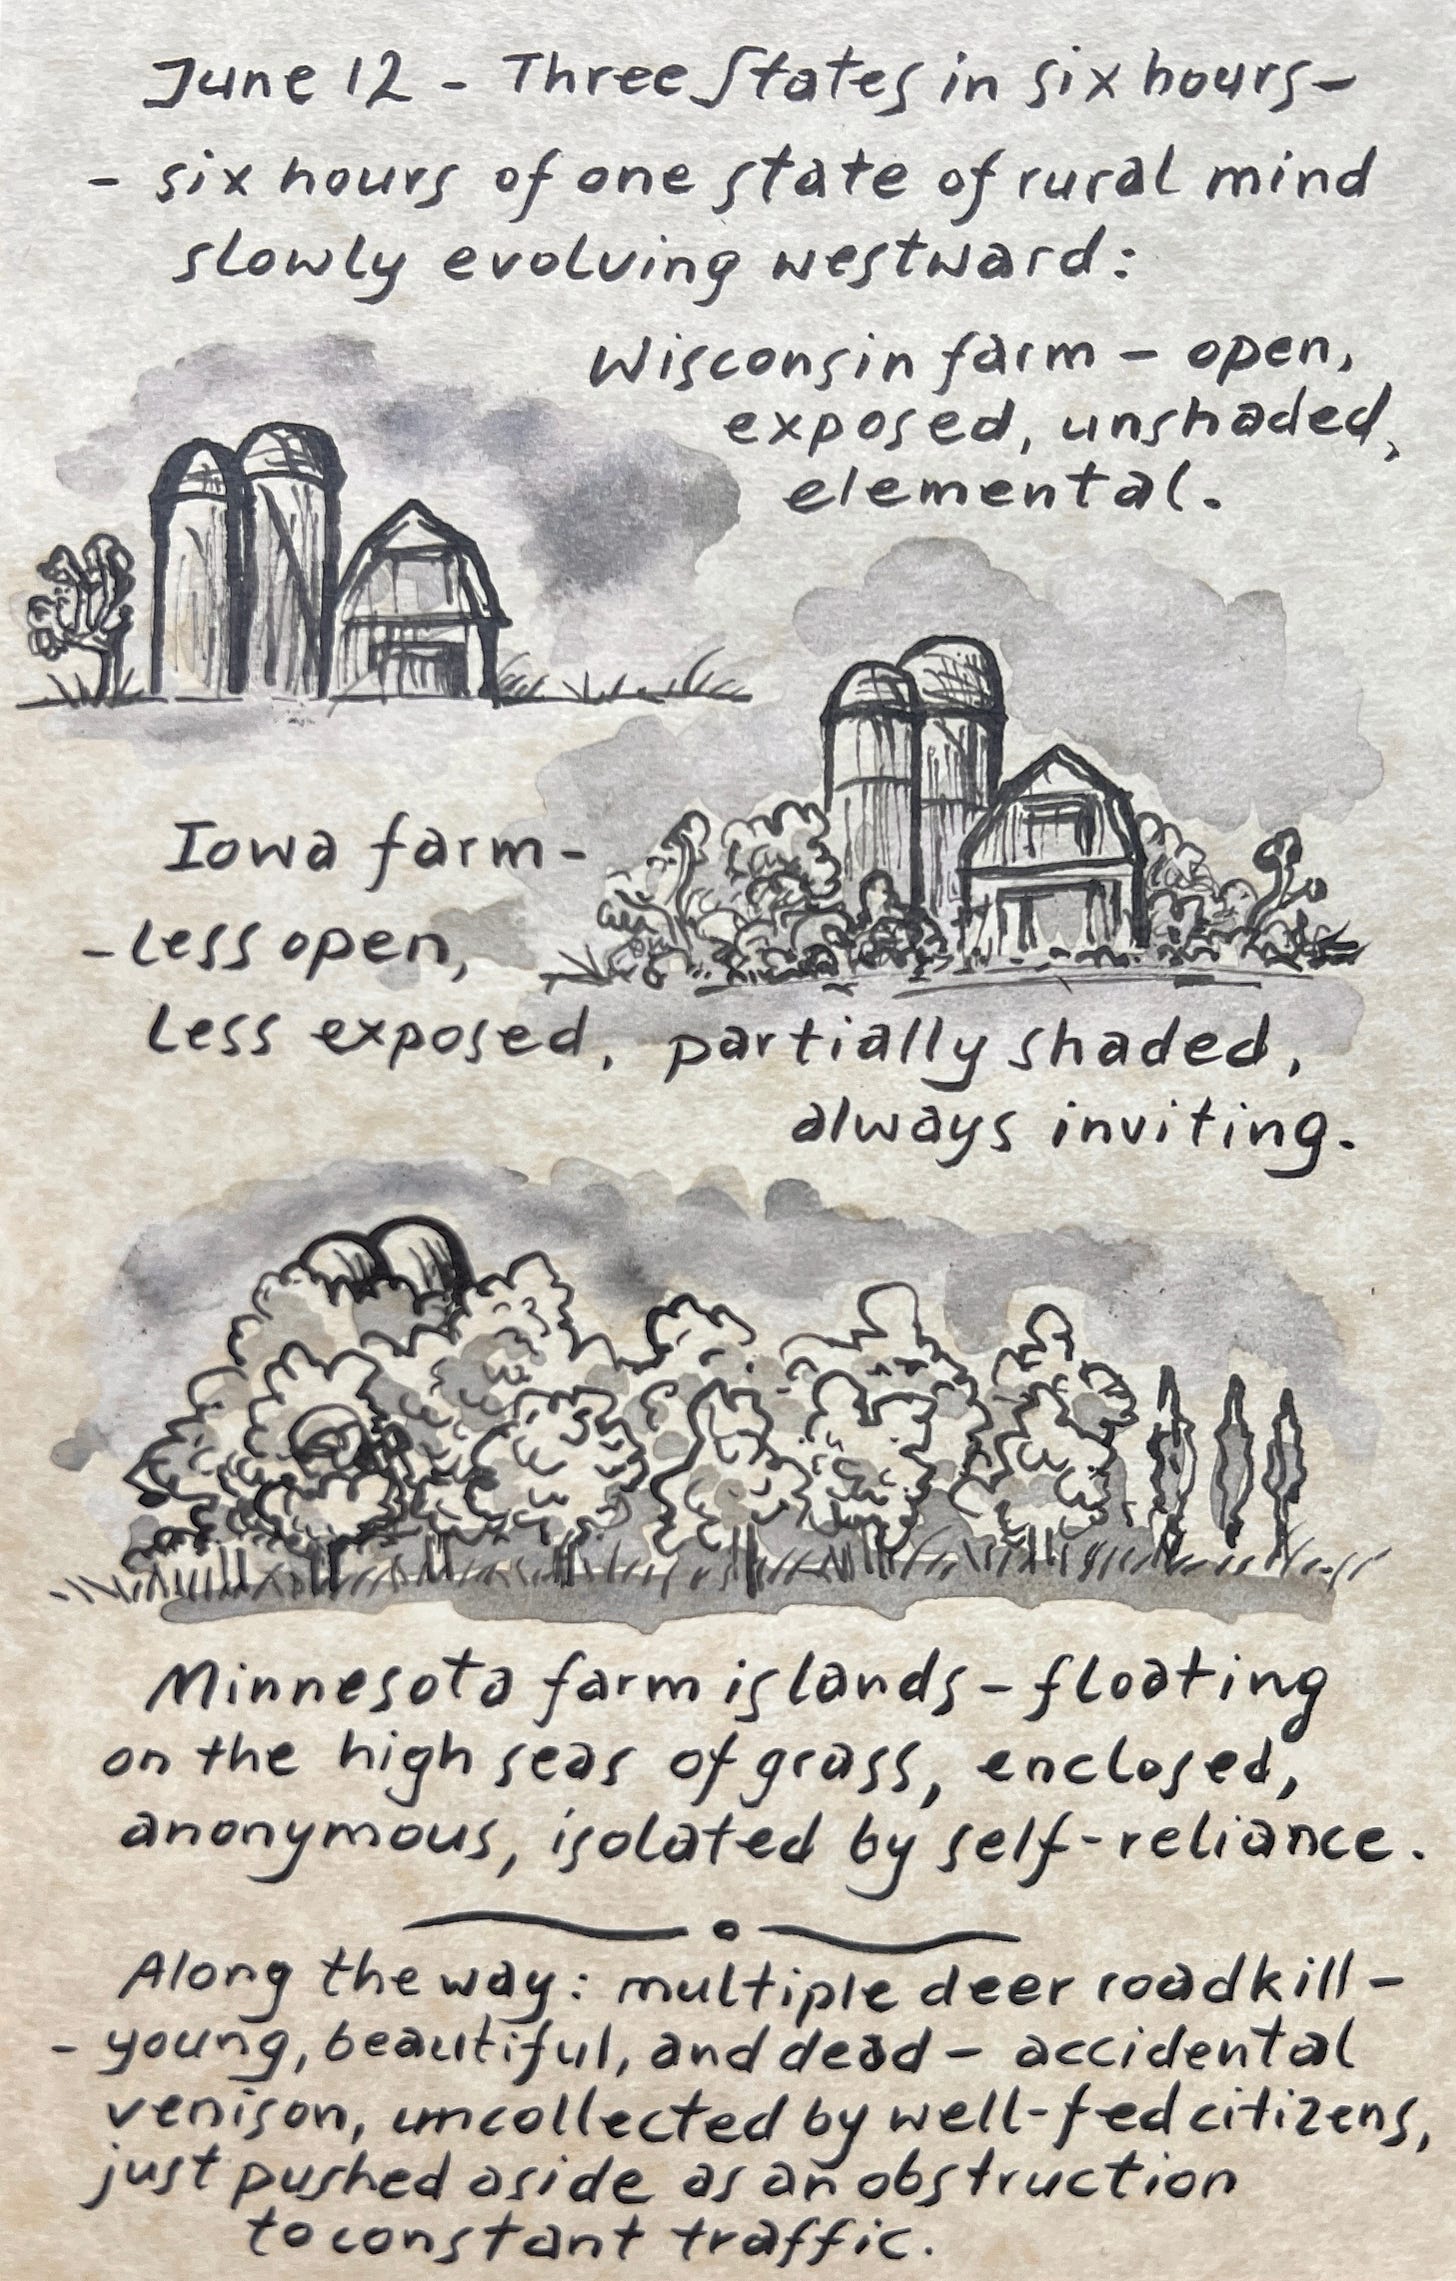 June 12 - Three States in six hours-
- six hours of one state of rural mind
slowly evolving westward:
Wisconsin farm - open,
exposed, unshaded,
elemental.
Iowa farm-
-less open,
less exposed, partially shaded,
always inviting.
Minnesota farm islands - floating
on the high seas of grass, enclosed,
anonymous, isolated by self-reliance.
Along the way: multiple deer roadkill -
- young, beautiful, and dead - accidental
venison, uncollected by well-fed citizens,
just pushed aside as an obstruction
to constant traffic.